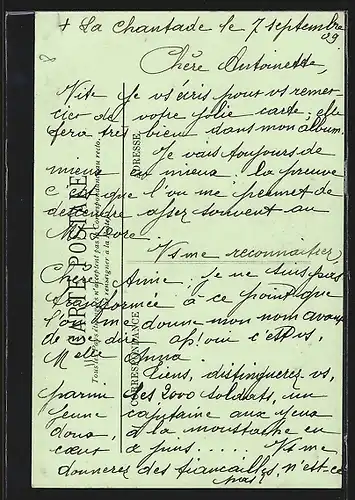 + La Chantade le 7 septembre
09
Chère Antoinette,
Vite je vs écris pour vs remer-
cier de votre jolie carte, elle
fera très bien dans mon album.
Je vais toujours de
mieux en mieux. La preuve
c'est que l'on me permet de
descendre assez souvent au
Vs me reconnaîtrez,
Chère Anne. Je ne suis pas
transformée à ce point que
l'on me donne mon nom avant
de me dire c'est vs,
Melle Anna.
Tiens, distinguerez vs,
parmi les 2000 soldats, un
jeune capitaine aux yeux
doux, à la moustache en
cœur à pins..... Vs me
donnerez des fiançailles, n'est-ce
pas
CARTE POSTALE
Tous les pays étrangers n'acceptent pas la Correspondance au recto,
se renseigner à la Poste
CORRESPONDANCE
ADRESSE